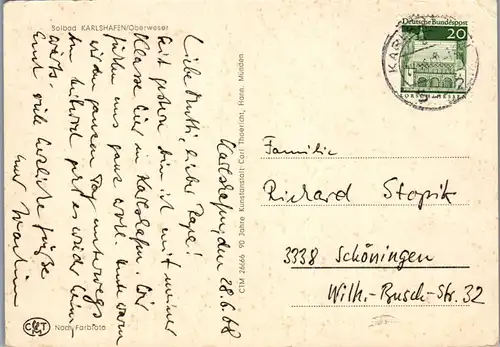 Solbad KARLSHAFEN/Oberweser
Karlshafen, den 28.6.68
Liebe Mutti, lieber Papa!
Seit gestern bin ich mit meiner
Klasse hier in Karlshafen. Wir
fühlen uns ganz wohl. Heute waren
wir den ganzen Tag unterwegs.
Am Mittwoch geht es wieder heim-
wärts.
Euch viele herzliche Grüße
Euer Martin
CTM 26666 90 Jahre Kunstanstalt Carl Thoericht, Hann. Münden
CTM
Nach Farbfoto
Deutsche Bundespost
20
LORSCH/HESSEN
Familie
Richard Stopik
3338 Schöningen
Wilh.-Busch-Str. 32